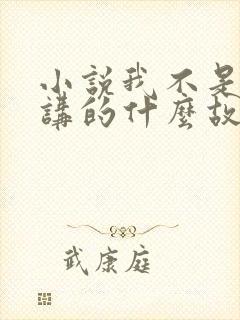 小説我不是
講的什麼故
武康庭